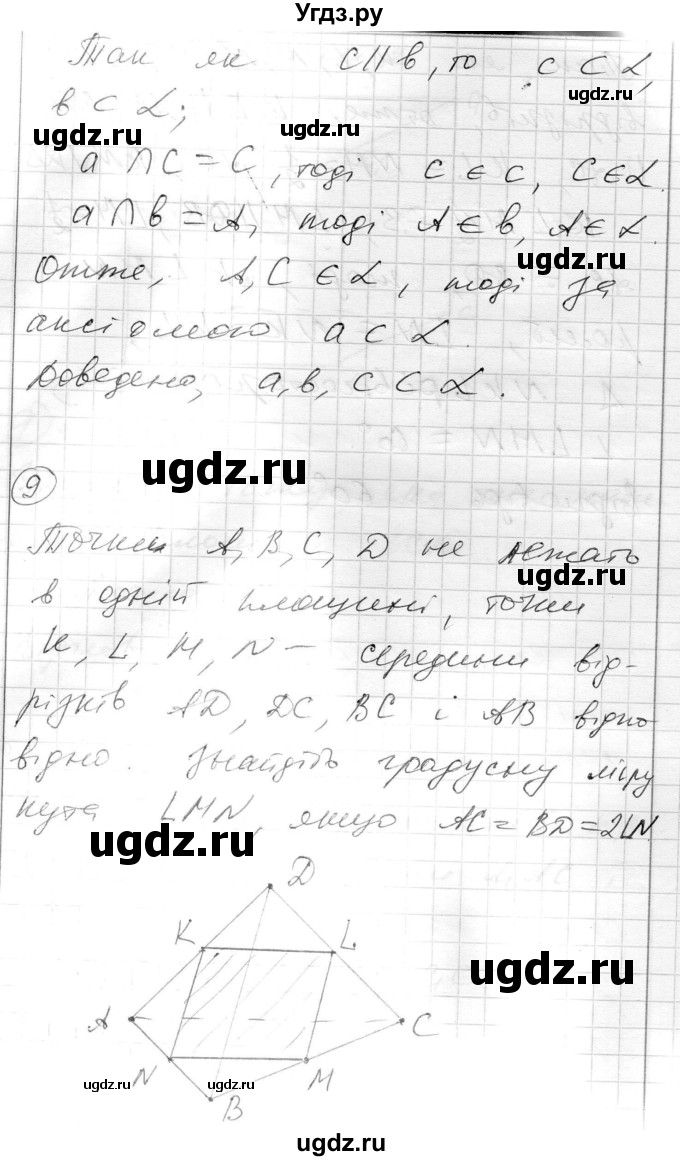 Угдз.ру
Так як c || b, то c ⊂ α,
b ⊂ α;
ugdz.ru
ugdz.ru
ugdz.ru
a ∩ c = C, тоді C ∈ c, C ∈ α.
a ∩ b = A, тоді A ∈ b, A ∈ α.
ugdz.ru
Отже, A, C ∈ α, тоді за
аксіомою a ⊂ α.
ugdz.ru
Доведено, a, b, c ⊂ α.
ugdz.ru
9
Точки A, B, C, D не лежать
ugdz.ru
в одній площині, точки
K, L, M, N – середини від-
різків AD, DC, BC і AB відпо
відно. Знайдіть градусну міру
кута LMN, якщо AC = BD = 2LN.
ugdz.ru
D
K
L
ugdz.ru
A
C
N
M
B
ugdz.ru
ugdz.ru
ugdz.ru